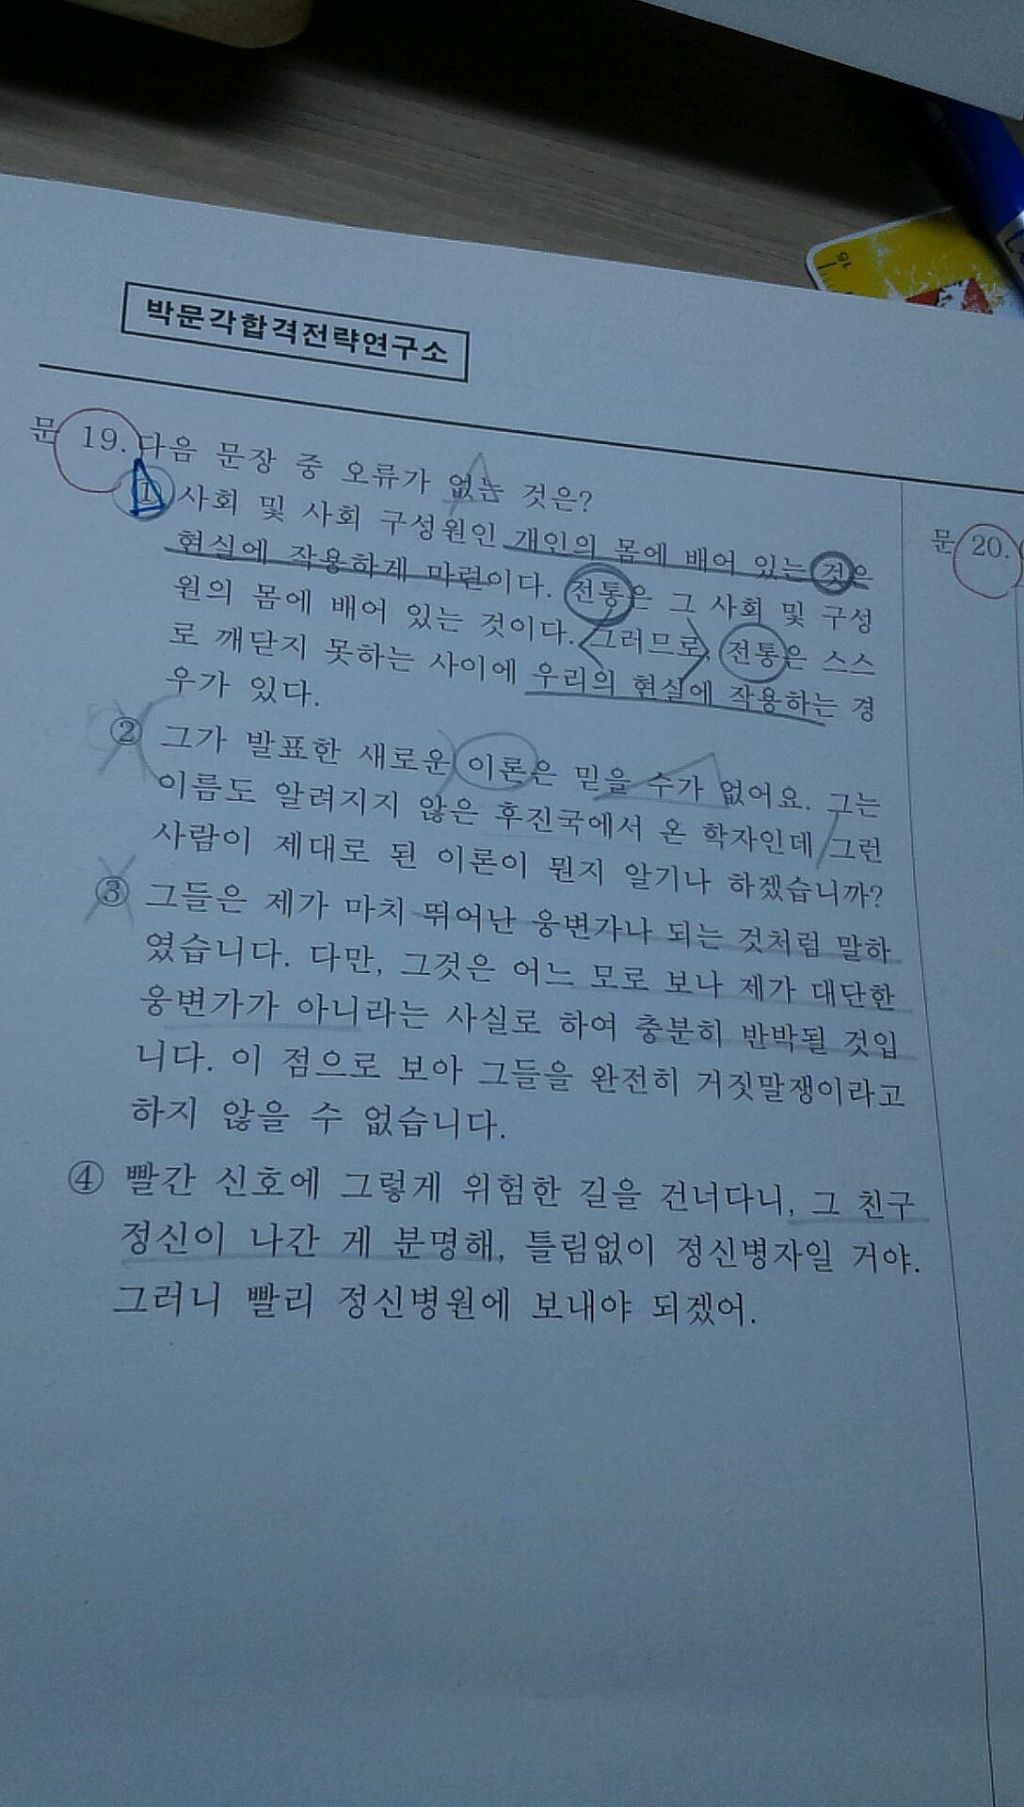 박문각합격전략연구소
문 19. 다음 문장 중 오류가 없는 것은?
① 사회 및 사회 구성원인 개인의 몸에 배어 있는 것은
현실에 작용하게 마련이다. 전통은 그 사회 및 구성
원의 몸에 배어 있는 것이다. 그러므로, 전통은 스스
로 깨닫지 못하는 사이에 우리의 현실에 작용하는 경
우가 있다.
② 그가 발표한 새로운 이론은 믿을 수가 없어요. 그는
이름도 알려지지 않은 후진국에서 온 학자인데 그런
사람이 제대로 된 이론이 뭔지 알기나 하겠습니까?
③ 그들은 제가 마치 뛰어난 웅변가나 되는 것처럼 말하
였습니다. 다만, 그것은 어느 모로 보나 제가 대단한
웅변가가 아니라는 사실로 하여 충분히 반박될 것입
니다. 이 점으로 보아 그들을 완전히 거짓말쟁이라고
하지 않을 수 없습니다.
④ 빨간 신호에 그렇게 위험한 길을 건너다니, 그 친구
정신이 나간 게 분명해, 틀림없이 정신병자일 거야.
그러니 빨리 정신병원에 보내야 되겠어.
문 20.